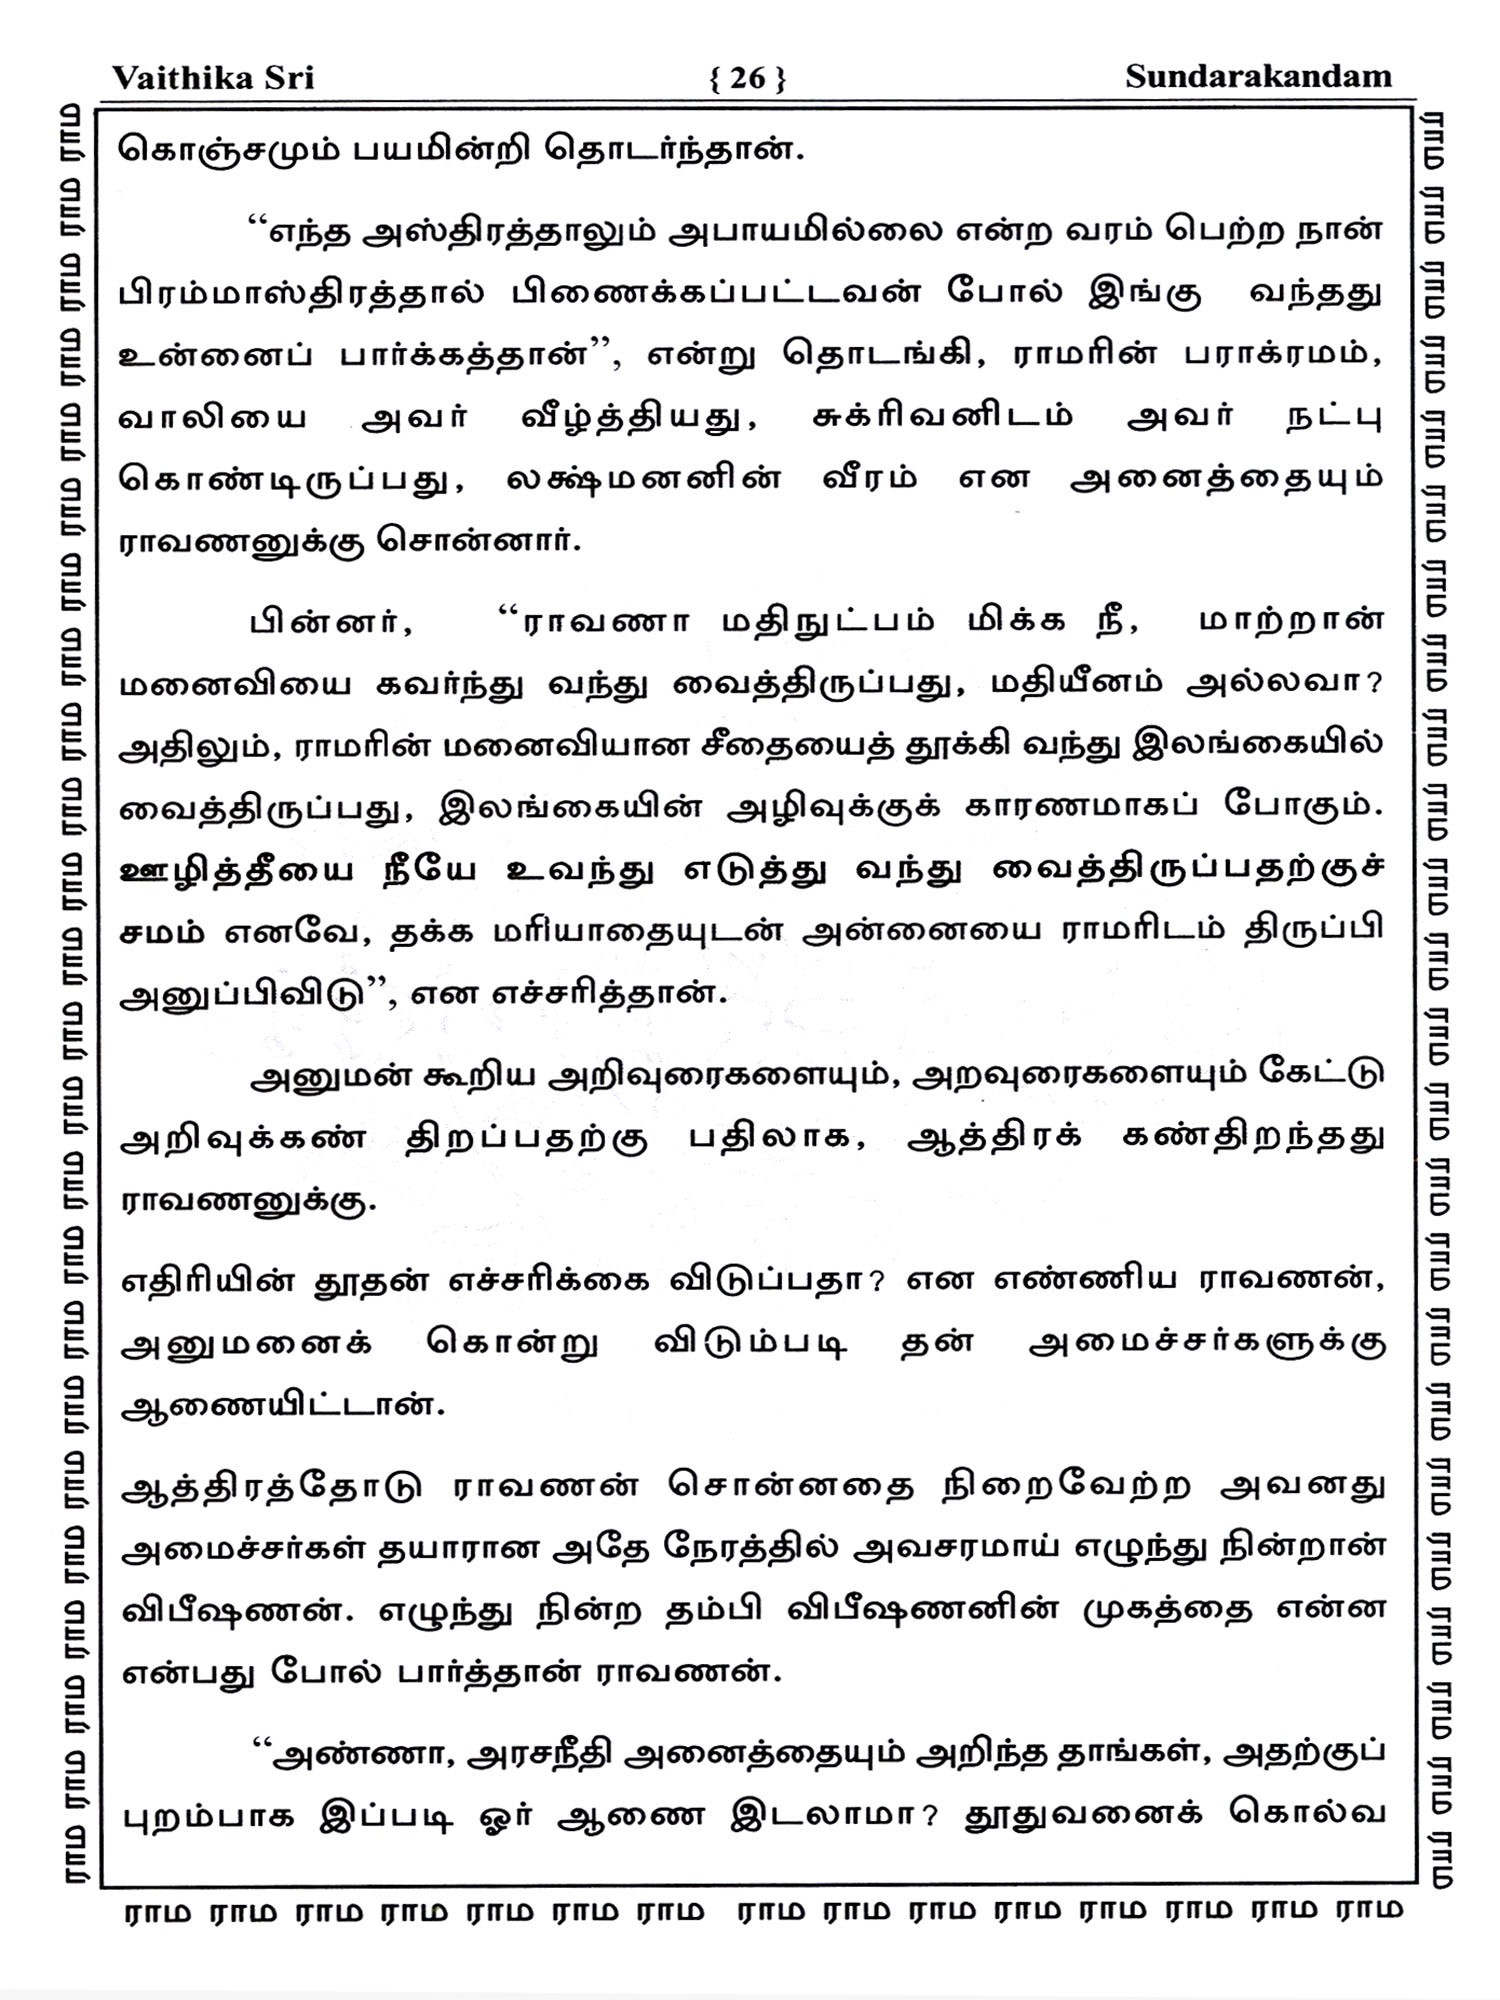 Vaithika Sri { 26 } Sundarakandam
கொஞ்சமும் பயமின்றி தொடர்ந்தான்.
“எந்த அஸ்திரத்தாலும் அபாயமில்லை என்ற வரம் பெற்ற நான்
பிரம்மாஸ்திரத்தால் பிணைக்கப்பட்டவன் போல் இங்கு வந்தது
உன்னைப் பார்க்கத்தான்”, என்று தொடங்கி, ராமரின் பராக்ரமம்,
வாலியை அவர் வீழ்த்தியது, சுக்ரிவனிடம் அவர் நட்பு
கொண்டிருப்பது, லக்ஷ்மனனின் வீரம் என அனைத்தையும்
ராவணனுக்கு சொன்னார்.
பின்னர், “ராவணா மதிநுட்பம் மிக்க நீ, மாற்றான்
மனைவியை கவர்ந்து வந்து வைத்திருப்பது, மதியீனம் அல்லவா?
அதிலும், ராமரின் மனைவியான சீதையைத் தூக்கி வந்து இலங்கையில்
வைத்திருப்பது, இலங்கையின் அழிவுக்குக் காரணமாகப் போகும்.
ஊழித்தீயை நீயே உவந்து எடுத்து வந்து வைத்திருப்பதற்குச்
சமம் எனவே, தக்க மரியாதையுடன் அன்னையை ராமரிடம் திருப்பி
அனுப்பிவிடு”, என எச்சரித்தான்.
அனுமன் கூறிய அறிவுரைகளையும், அறவுரைகளையும் கேட்டு
அறிவுக்கண் திறப்பதற்கு பதிலாக, ஆத்திரக் கண்திறந்தது
ராவணனுக்கு.
எதிரியின் தூதன் எச்சரிக்கை விடுப்பதா? என எண்ணிய ராவணன்,
அனுமனைக் கொன்று விடும்படி தன் அமைச்சர்களுக்கு
ஆணையிட்டான்.
ஆத்திரத்தோடு ராவணன் சொன்னதை நிறைவேற்ற அவனது
அமைச்சர்கள் தயாரான அதே நேரத்தில் அவசரமாய் எழுந்து நின்றான்
விபீஷணன். எழுந்து நின்ற தம்பி விபீஷணனின் முகத்தை என்ன
என்பது போல் பார்த்தான் ராவணன்.
“அண்ணா, அரசநீதி அனைத்தையும் அறிந்த தாங்கள், அதற்குப்
புறம்பாக இப்படி ஓர் ஆணை இடலாமா? தூதுவனைக் கொல்வ
ராம ராம ராம ராம ராம ராம ராம ராம ராம ராம ராம ராம ராம ராம ராம
ராம ராம ராம ராம ராம ராம ராம ராம ராம ராம ராம ராம ராம ராம ராம ராம ராம ராம ராம ராம ராம ராம ராம ராம
ராம ராம ராம ராம ராம ராம ராம ராம ராம ராம ராம ராம ராம ராம ராம ராம ராம ராம ராம ராம ராம ராம ராம ராம